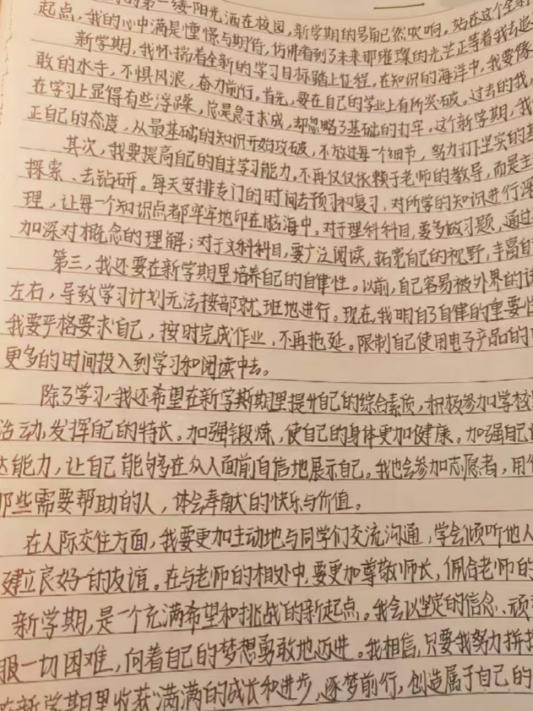 的第一缕阳光洒在校园，新学期的号角已然吹响。站在这个全新
起点，我的心中满是憧憬与期待，仿佛看到了未来那璀璨的光芒正等着我去追
新学期，我怀揣着全新的学习目标踏上征程。在知识的海洋中，我要像
敢的水手，不惧风浪，奋力前行。首先，要在自己的学业上有所突破。过去的我，
在学习上显得有些浮躁，总是急于求成，却忽略了基础的打牢。这个新学期，我
正自己的态度，从最基础的知识开始攻破，不放过每一个细节，努力打坚实的基
其次，我要提高自己的自主学习能力，不再仅仅依赖于老师的教导，而是主
探索、去钻研。每天安排专门的时间去预习和复习，对所学的知识进行深
理，让每一个知识点都牢牢地印在脑海中。对于理科科目，要多做习题，通过
加深对概念的理解；对于文科科目，要广泛阅读，拓宽自己的视野，丰富自
第三，我还要在新学期里培养自己的自律性。以前，自己容易被外界的诱
左右，导致学习计划无法按部就班地进行。现在，我明白了自律的重要性
我要严格要求自己，按时完成作业，不再拖延。限制自己使用电子产品的时
更多的时间投入到学习和阅读中去。
除了学习，我还希望在新学期期里提升自己的综合素质，积极参加学校
活动，发挥自己的特长。加强锻炼，使自己的身体更加健康。加强自己
达能力，让自己能够在众人面前自信地展示自己。我也会参加志愿者，用
那些需要帮助的人，体会奉献的快乐与价值。
在人际交往方面，我要更加主动地与同学们交流沟通，学会倾听他人
建立良好的友谊。在与老师的相处中，要更加尊敬师长，佩合老师的
新学期，是一个充满希望和挑战的新起点。我会以坚定的信念、顽
服一切困难，向着自己的梦想勇敢地迈进。我相信，只要我努力拼搏
在新学期里收获满满的成长和进步，逐梦前行，创造属于自己的